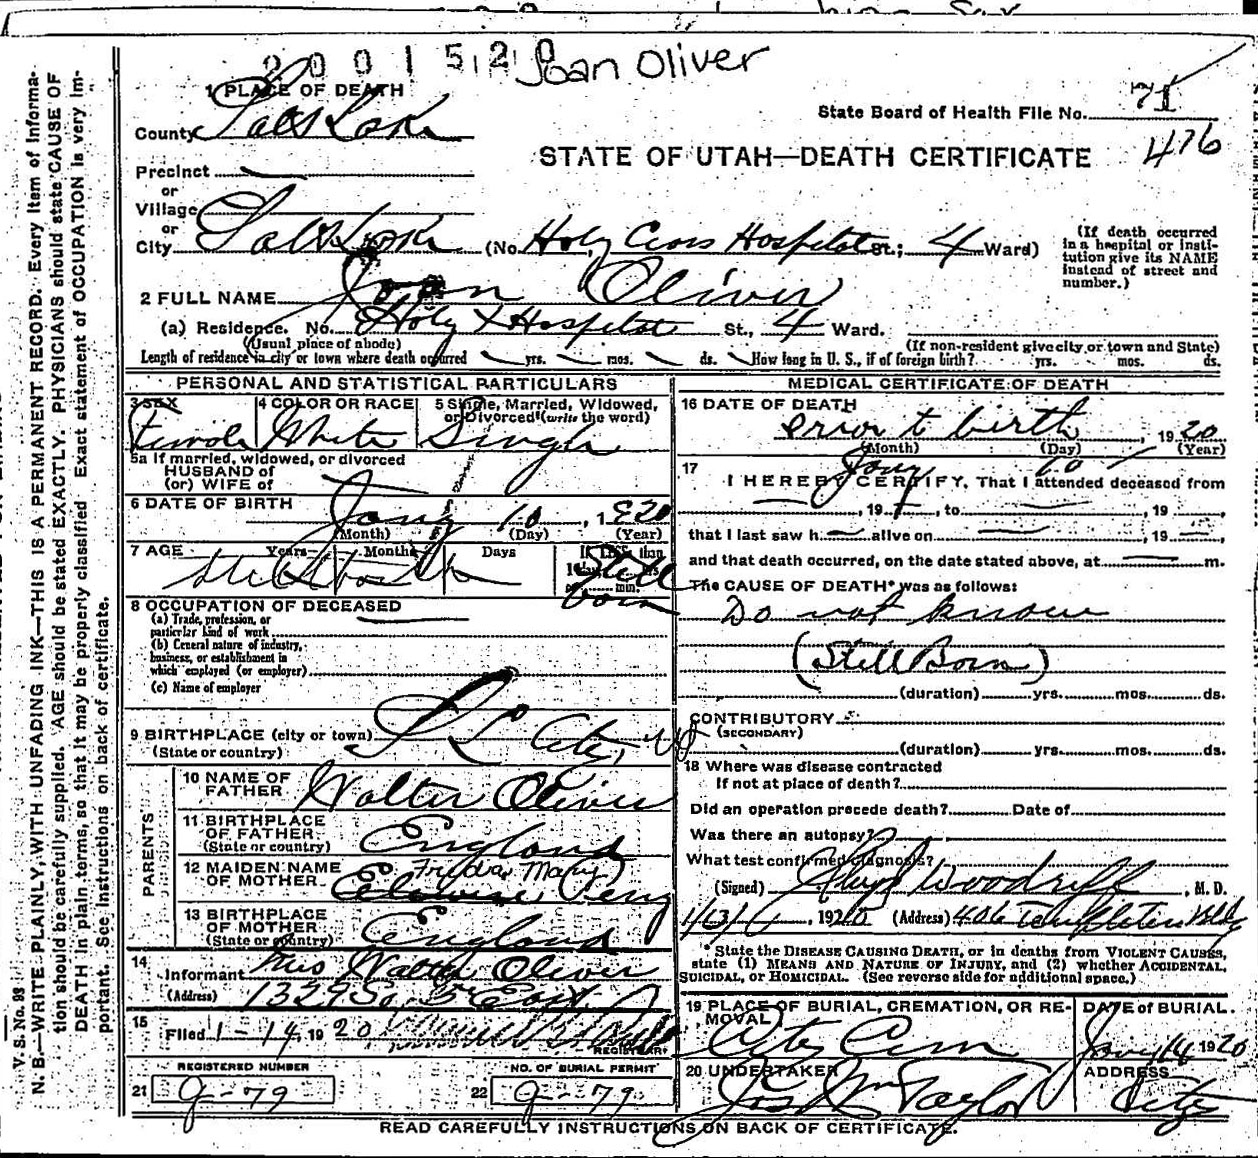 2001520 Joan Oliver
1 PLACE OF DEATH
County Salt Lake
State Board of Health File No. 71
476
STATE OF UTAH—DEATH CERTIFICATE
Precinct
or
Village
or
City Salt Lake (No. Holy Cross Hospital St.; 4 Ward)
(If death occurred in a hospital or institution give its NAME instead of street and number.)
2 FULL NAME Joan Oliver
(a) Residence. No. Holy X Hospital St., 4 Ward.
(Usual place of abode) (If non-resident give city or town and State)
Length of residence in city or town where death occurred yrs. mos. ds. How long in U. S., if of foreign birth? yrs. mos. ds.
PERSONAL AND STATISTICAL PARTICULARS
3 SEX 4 COLOR OR RACE 5 Single, Married, Widowed, or Divorced (write the word)
Female White Single
5a If married, widowed, or divorced
HUSBAND of
(or) WIFE of
6 DATE OF BIRTH Jany 10, 1920
(Month) (Day) (Year)
7 AGE Years Months Days If LESS than 1 day, hrs. or min.
Stillbirth Still born
8 OCCUPATION OF DECEASED
(a) Trade, profession, or
particular kind of work
(b) General nature of industry,
business, or establishment in
which employed (or employer)
(c) Name of employer
9 BIRTHPLACE (city or town) S L City, Ut
(State or country)
PARENTS
10 NAME OF FATHER Walter Oliver
11 BIRTHPLACE OF FATHER (State or country) England
12 MAIDEN NAME OF MOTHER Mary Perry
13 BIRTHPLACE OF MOTHER (State or country) England
14 Informant Mrs Walter Oliver
(Address) 1329 So. 5th East
15 Filed 1-14, 1920
REGISTRAR
REGISTERED NUMBER NO. OF BURIAL PERMIT
21 G-79 22 G-79
MEDICAL CERTIFICATE OF DEATH
16 DATE OF DEATH
prior to birth, 1920
(Month) (Day) (Year)
Jany 10
17 I HEREBY CERTIFY, That I attended deceased from
, 19 , to , 19 ,
that I last saw h alive on , 19 ,
and that death occurred, on the date stated above, at m.
The CAUSE OF DEATH* was as follows:
Do not know
(Still Born)
(duration) yrs. mos. ds.
CONTRIBUTORY
(SECONDARY)
(duration) yrs. mos. ds.
18 Where was disease contracted
If not at place of death?
Did an operation precede death? Date of
Was there an autopsy?
What test confirmed diagnosis?
(Signed) Woodruff, M. D.
1/13/, 1920 (Address) 406 Templeton Bldg
*State the DISEASE CAUSING DEATH, or in deaths from VIOLENT CAUSES,
state (1) MEANS AND NATURE OF INJURY, and (2) whether ACCIDENTAL,
SUICIDAL, or HOMICIDAL. (See reverse side for additional space.)
19 PLACE OF BURIAL, CREMATION, OR REMOVAL DATE of BURIAL.
City Cem Jany 14 1920
20 UNDERTAKER ADDRESS
Jos Wm Taylor City
READ CAREFULLY INSTRUCTIONS ON BACK OF CERTIFICATE.
V. S. No. 93
N. B.—WRITE PLAINLY, WITH UNFADING INK—THIS IS A PERMANENT RECORD. Every item of information
should be carefully supplied. AGE should be stated EXACTLY. PHYSICIANS should state CAUSE OF
DEATH in plain terms, so that it may be properly classified. Exact statement of OCCUPATION is very important.
See instructions on back of certificate.